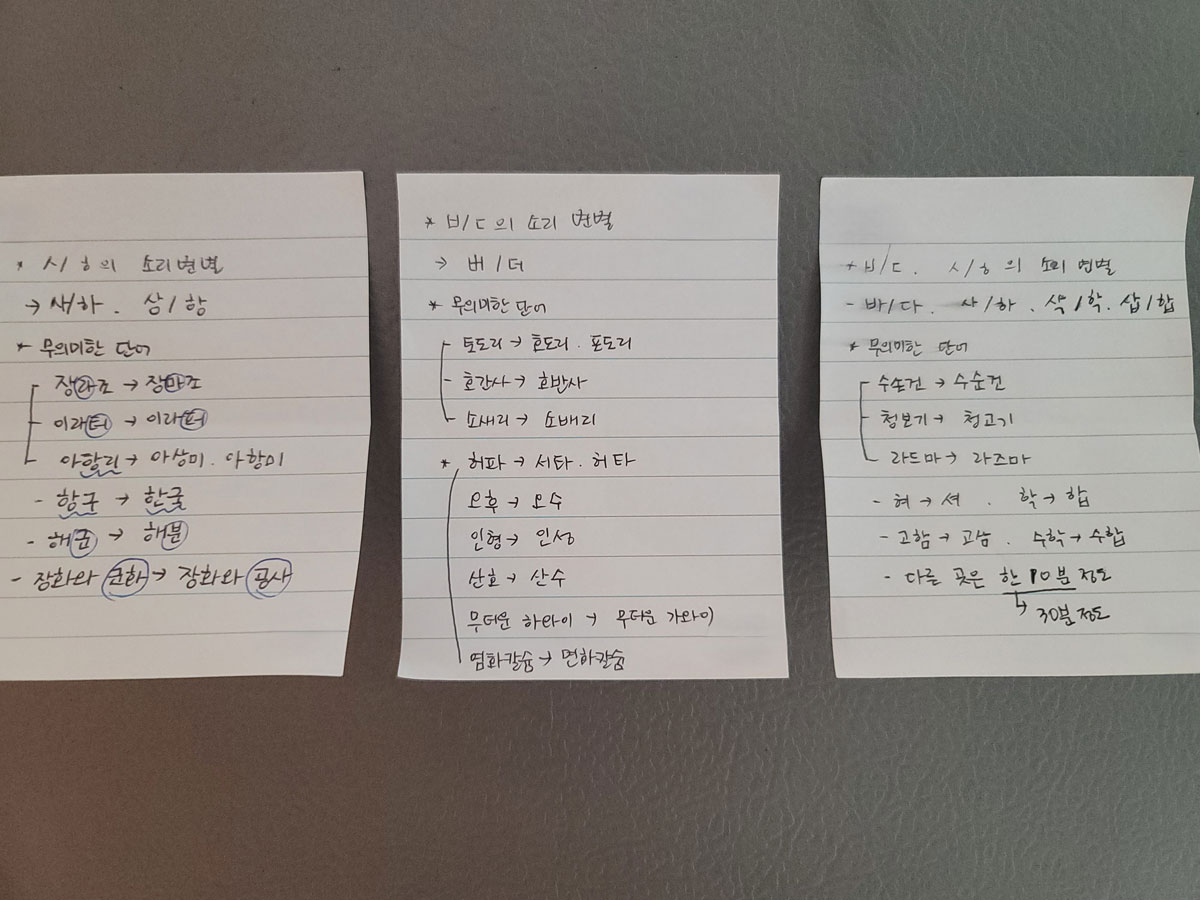 * ㅅ/ㅎ의 소리변별
→ 사/하. 상/항
* 무의미한 단어
장라조 → 장마조
이래터 → 이래퍼
아항리 → 아상미. 아항미
- 항구 → 한굴
- 해군 → 해분
- 장화와 군화 → 장화와 공사
* ㅂ/ㄷ의 소리 변별
→ 버/더
* 무의미한 단어
토도리 → 호도리. 포도리
호간사 → 호반사
소새리 → 소배리
* 허파 → 서타. 허타
오후 → 오수
인형 → 인성
산호 → 산수
무더운 하와이 → 무더운 가와이
염화칼슘 → 면하칼슘
* ㅂ/ㄷ. ㅅ/ㅎ의 소리 변별
- 바/다. 사/하. 삭/학. 삽/합
* 무의미한 단어
수손건 → 수순건
청보기 → 청고기
라드마 → 라즈마
- 혀 → 셔. 학 → 합
- 고함 → 고삼. 수학 → 수합
- 다를 곳은 한 10분 정도
↳ 30분정도